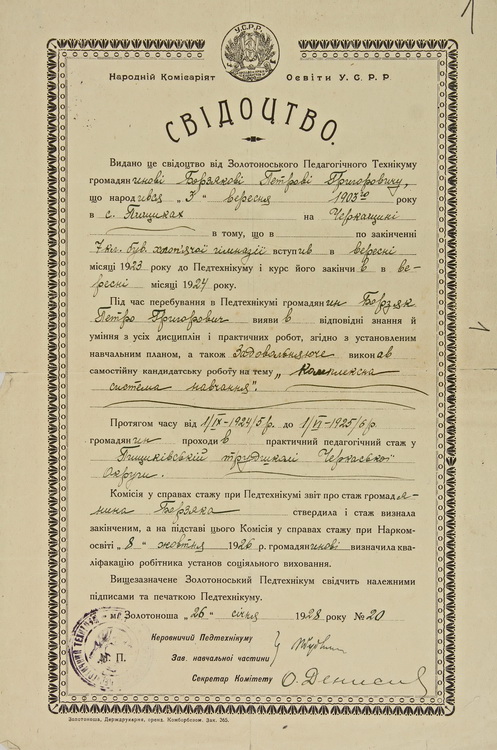 1
У.С.Р.Р.
Народній Комісаріят Освіти У.С.Р.Р
СВІДОЦТВО.
Видано це свідоцтво від Золотоноського Педагогічного Технікуму
громадянинові Борзякові Петрові Григоровичу,
що народився „3" вересня 1903го року
в с. Пищиках на Черкащині
в тому, що в по закінченні
7 кл. був. хлопячої гімназії вступив в вересні
місяці 1923 року до Педтехнікуму і курс його закінчив в ве-
ресні місяці 1924 року.
Під час перебування в Педтехнікумі громадянин Борзяк
Петро Григорович виявив відповідні знання й
уміння з усіх дисциплін і практичних робот, згідно з установленим
навчальним планом, а також Задовольняюче виконав
самостійну кандидатську роботу на тему „Комплексна
система навчання".
Протягом часу від 1/IX-1924/5 р. до 1/VI-1925/6 р.
громадянин проходив практичний педагогічний стаж у
Пищиківській трудшколі Черкаської
Округи.
Комісія у справах стажу при Педтехнікумі звіт про стаж громадя-
нина Борзяка ствердила і стаж визнала
закінченим, а на підставі цього Комісія у справах стажу при Нарком-
освіті „8" жовтня 1926 р. громадянинові визначила ква-
ліфікацію робітника установ соціяльного виховання.
Вищезазначене Золотоноський Педтехнікум свідчить належними
підписами та печаткою Педтехнікуму.
м. Золотоноша „26" січня 1928 року № 20
Керовничий Педтехнікуму
М. П. Зав. навчальної частини
Секретар Комітету О. Денис
Золотоноша, Держдрукарня, оренд. Комборбезом. Зак. 265.